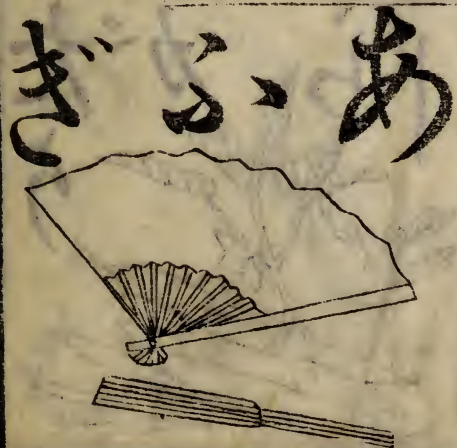 あふぎ